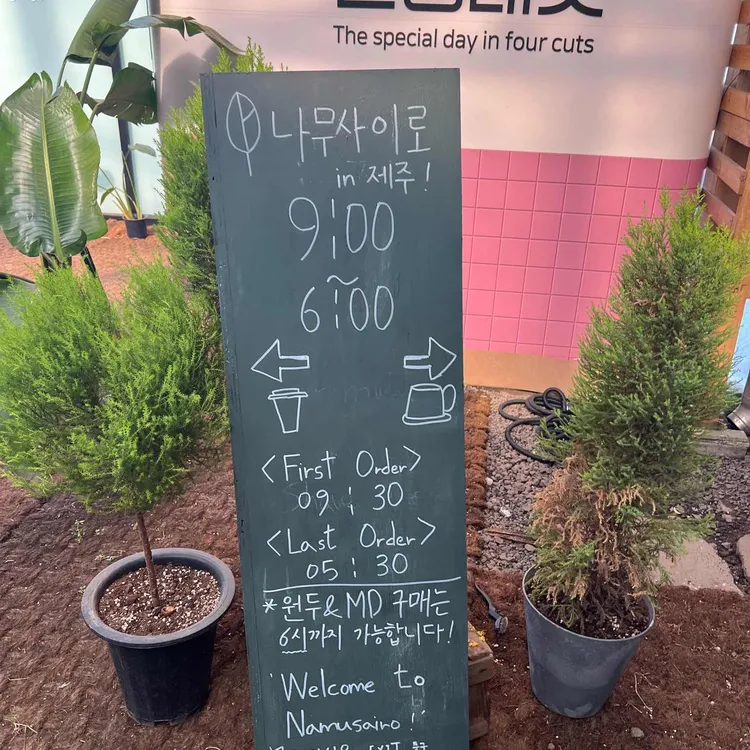 The special day in four cuts
나무사이로
in 제주!
9:00
~
6:00
<First Order>
09:30
<Last Order>
05:30
*원두&MD 구매는
6시까지 가능합니다!
Welcome to
Namusairo!